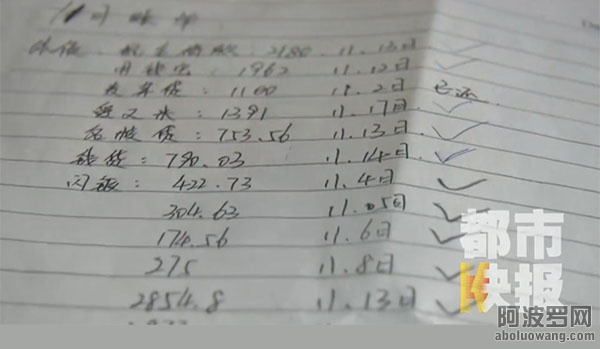 11月账单
2180 11.13日
用钱宝: 1962 11.12日
1100 11.2日 已还
1391 11.17日
名校贷: 753.56 11.13日
钱贷: 790.03 11.14日
闪银: 422.73 11.4日
304.63 11.05日
174.56 11.6日
275 11.8日
2854.8 11.13日
都市
快报
阿波罗网
aboluowang.com